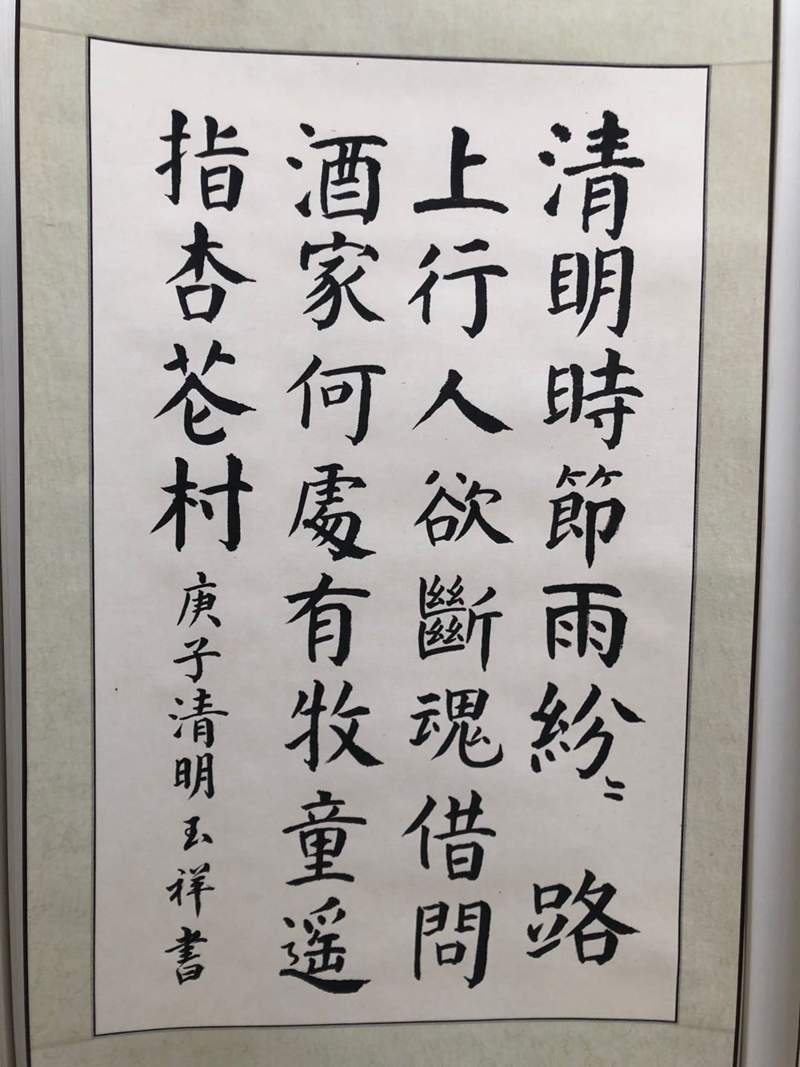 清明時節雨紛〻路
上行人欲斷魂借問
酒家何處有牧童遥
指杏花村庚子清明玉祥書